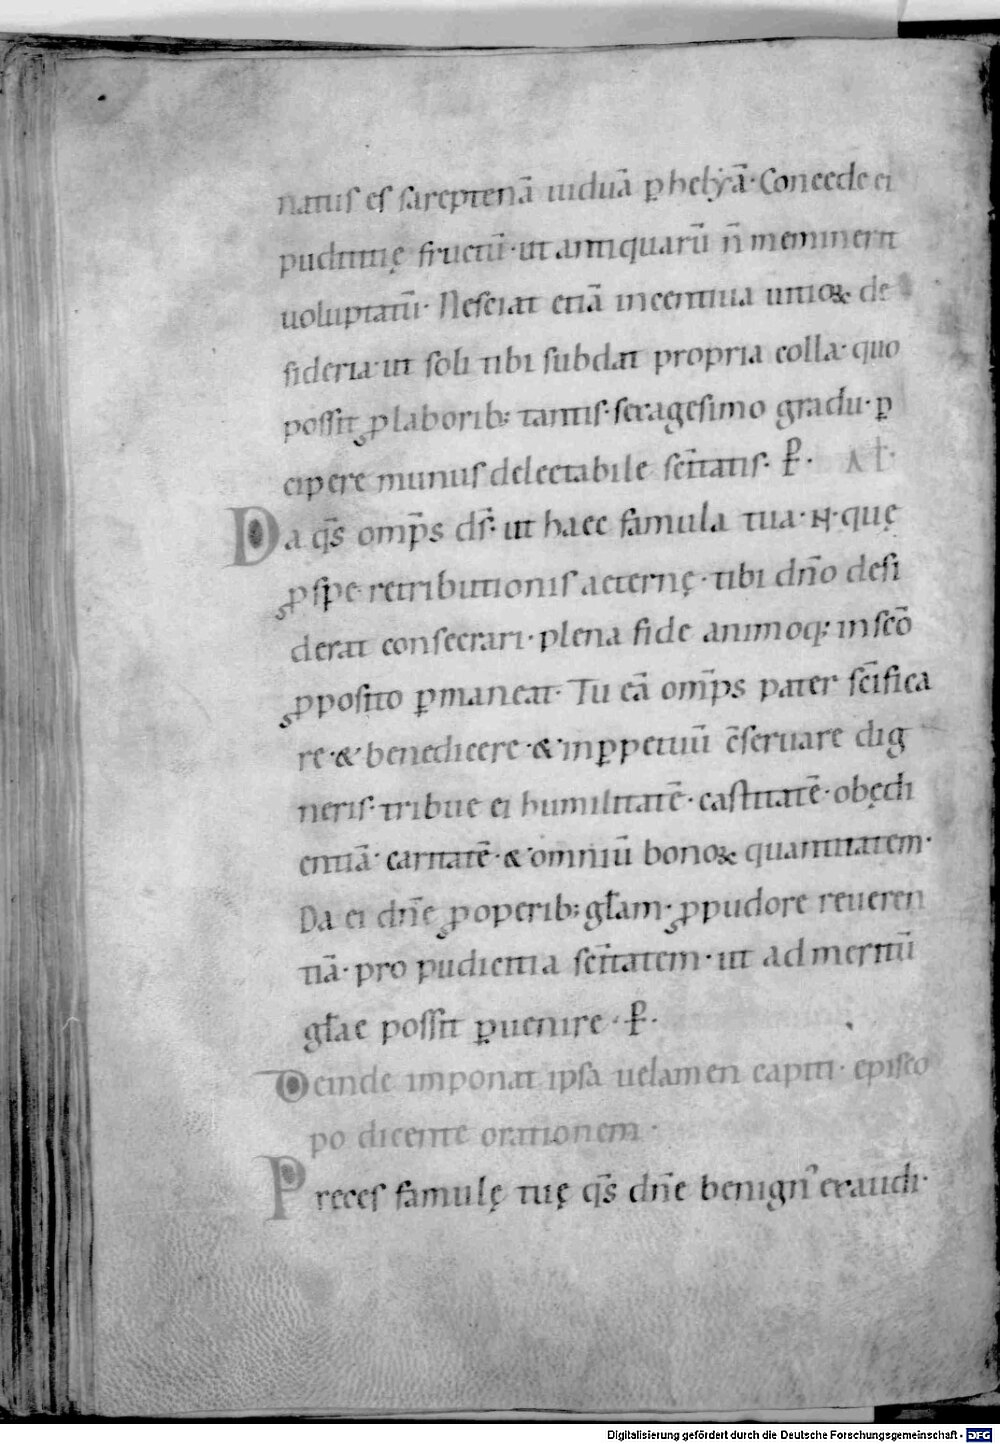 natus es sareptenā uiduā ꝑ helyā· Concede ei
pudicitię fructū· ut antiquarū n̄ meminerit
uoluptatū· Nesciat etiā incentiua uitioꝝ de
sideria· ut soli tibi subdat propria colla· quo
possit ꝓ laborib; tantis· sexagesimo gradu· ꝑ
cipere munus delectabile scītatis· P̄· AŁ·
Da q̄s omp̄s ds̄· ut haec famula tua· N· quę
ꝓ spe retributionis aeternę· tibi dn̄o desi
derat consecrari· plena fide animoq; in scō
ꝓposito ꝑmaneat· Tu eā omp̄s pater scīfica
re· & benedicere· & inꝑpetuū c̄seruare dig
neris· tribue ei humilitatē· castitatē· obędi
entiā· caritatē· & omniū bonoꝝ quantitatem·
Da ei dn̄e ꝓ operib; gƚam· ꝓ pudore reueren
tiā· pro pudicitia scītatem· ut ad meritū
gƚae possit ꝑuenire· P̄·
Deinde imponat ipsa uelamen capiti· episco
po dicente orationem·
Preces famulę tuę q̄s dn̄e benign᾿ exaudi·
Digitalisierung gefördert durch die Deutsche Forschungsgemeinschaft - DFG